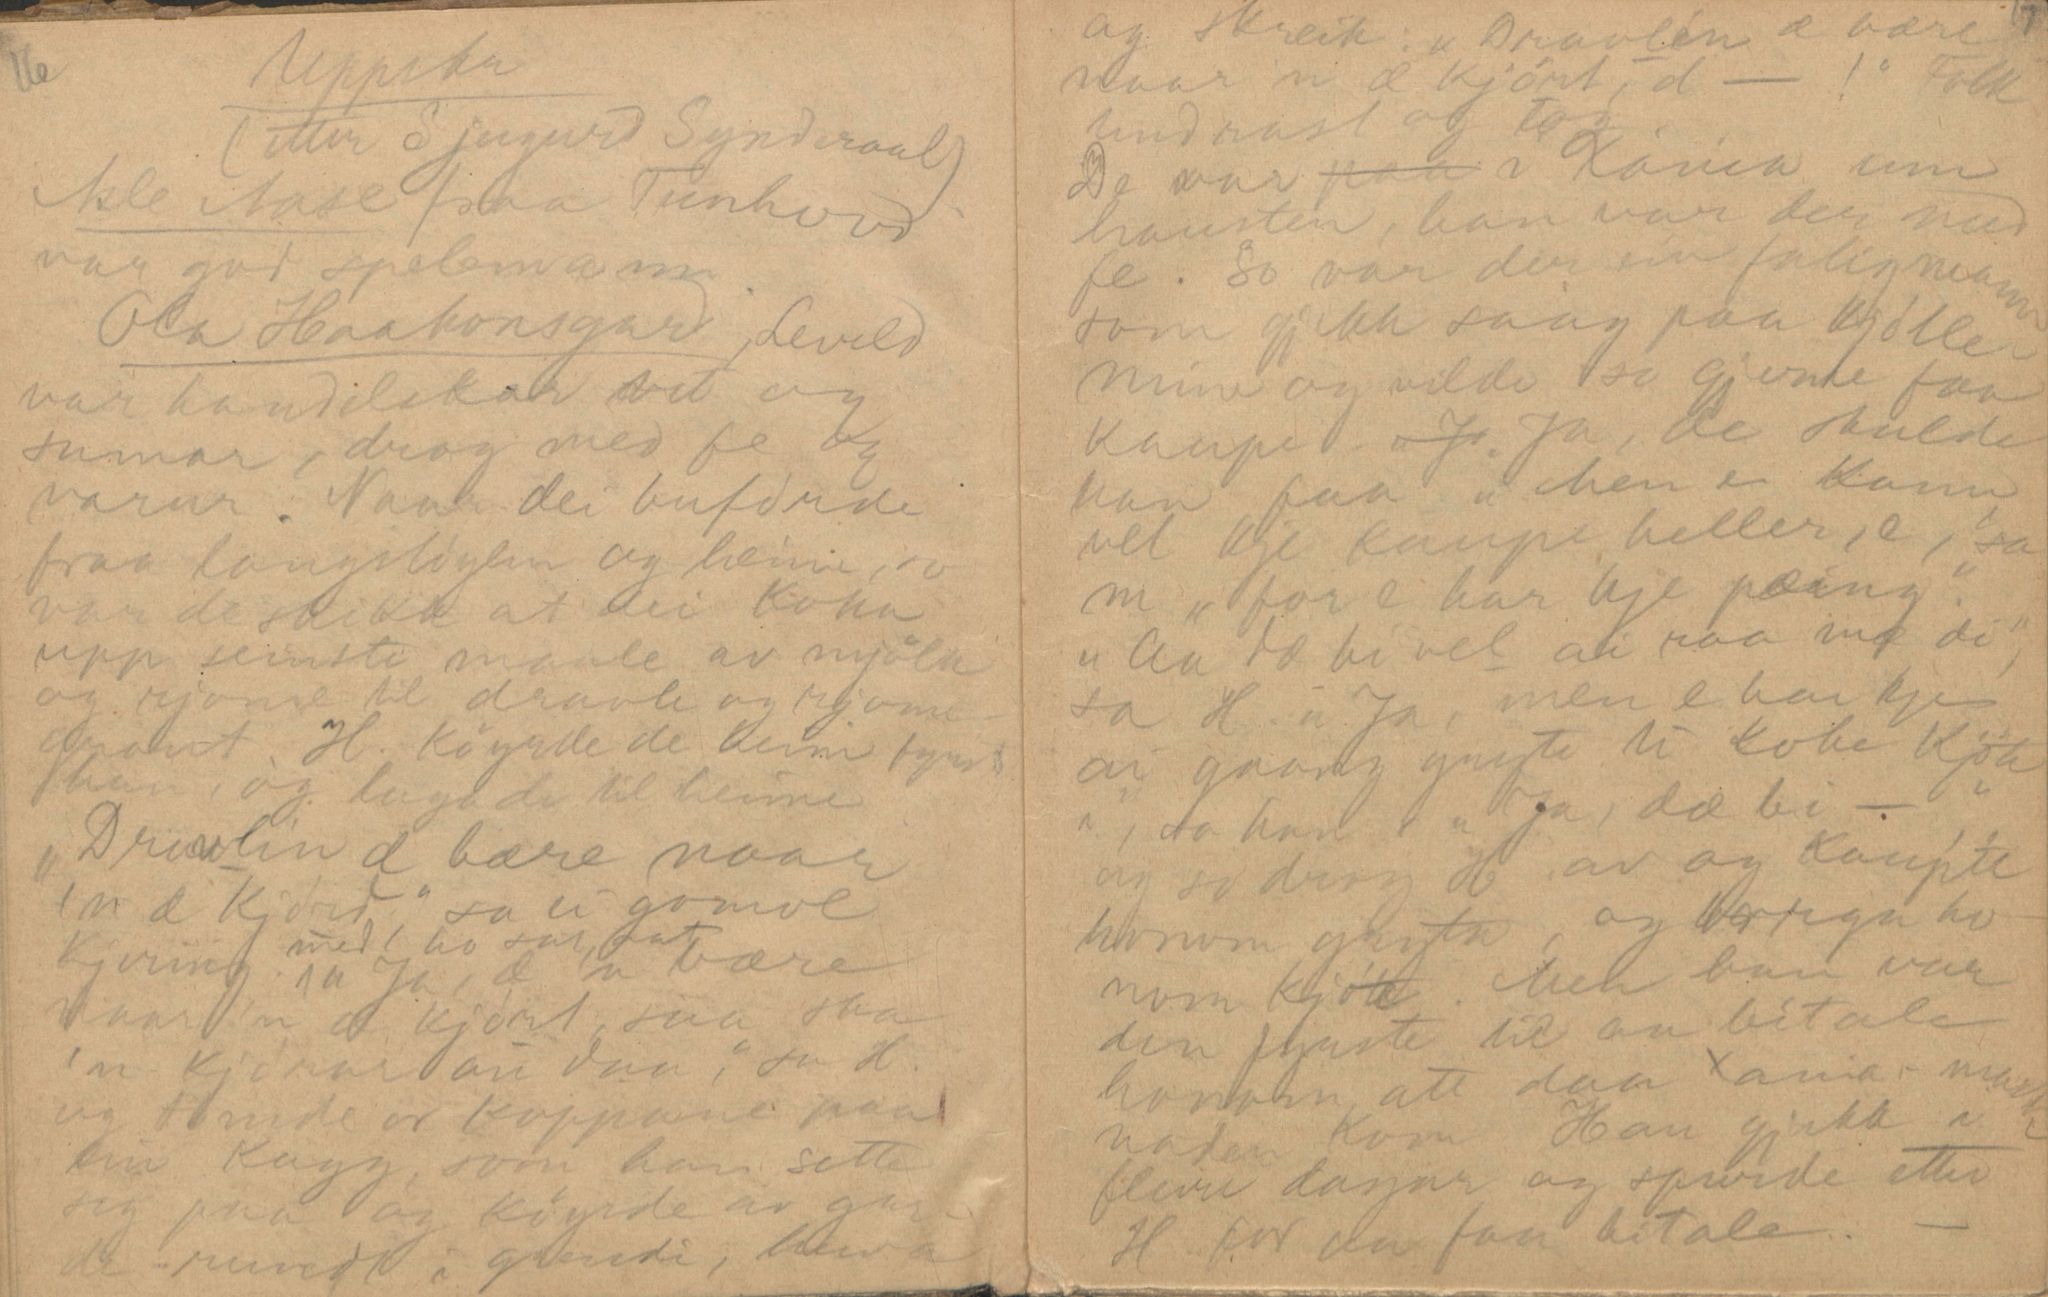 16
Uppskr
(etter Sjugurd Synderaal)
Asle Aase fraa Tunhovd
var god spelemann
Ola Haakonsgard, Leveld
var handelskar vet og
sumar, drog med fe og
varur. Naar dei buförde
fraa langstöylen og heim, so
var de skikk at dei koka
upp seinste maale av mjölk
og rjome til dravle og rjome-
graut. H. köyrde de heim fyrst
han, og lagade til heime
"Dravlin æ bære naar
'n æ kjörd" sa ei gomol
kjering med ho sat, sat
"Ja, æ 'n bære
naar 'n æ kjört, saa ska
'n kjörast ai daa," sa H.
og tömde or koppane paa
ein kagg, som han sette
seg paa og köyrde av gar-
de rundt i grendi,
17
og skreik: "Dravlin æ bære
naar 'n æ kjört, d — !" Folk
undrast og log.
De var paa i Xania um
hausten, han var der med
fe. So var der ein falig mann
som gjekk saag paa kjötte
mine og vilde so gjerne faa
kaupe. Ja, de skulde
han faa "Men e kann
vel kje kaupe heller, e," sa
'n "for e har kje pæing".
"Aa dæ bi vel ai raa mæ di",
sa H. "Ja, men e har kje
ai gaang gryte ti koke kjöt
i", sa han. "Ja, dæ bi — ,"
og so drog H av og kaupte
honom gryta, og borga ho-
nom kjöt. Men han var
den fyrste til aa bitale
honom att daa Xania-mark
naden kom Han gjekk i
fleire dagar og spurde etter
H for aa faa bitale. —